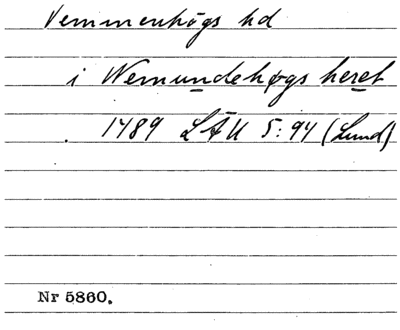 Vemmenhögs hd
i Wemundehøgs heret
1489 LÄU 5:94 (Lund)
Nr 5860.